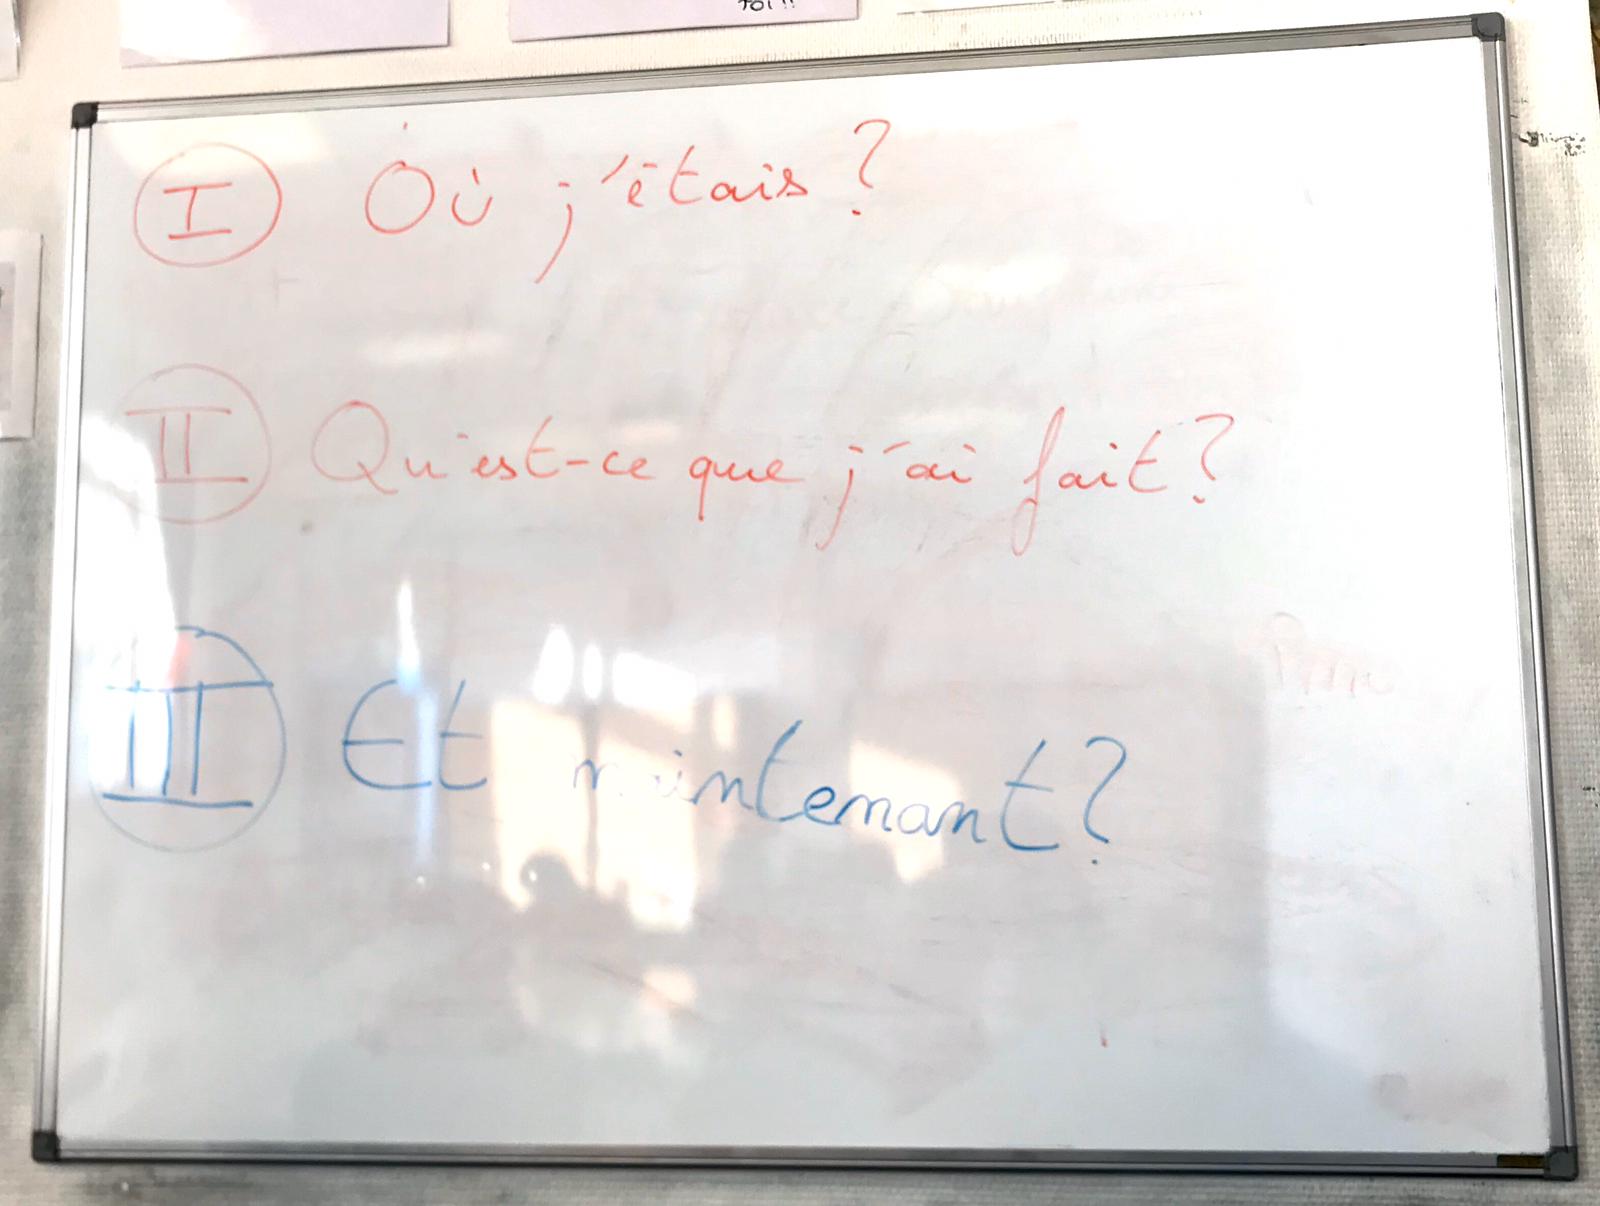 toi!!
I Où j'étais?
II Qu'est-ce que j'ai fait?
III Et maintenant?